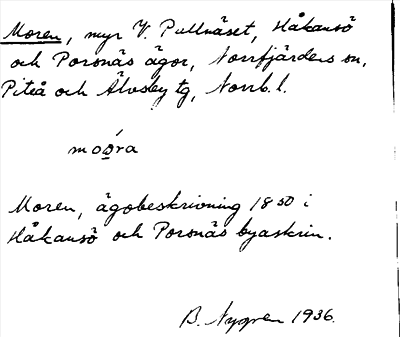 Moren, myr V. Pullnäset, Håkansö
och Porsnäs ägor, Norrfjärdens sn,
Piteå och Älvsby tg, Norrb. l.
moo̲ra
Moren, ägobeskrivning 1850 i
Håkansö och Porsnäs byaskrin.
B. Nygren 1936.